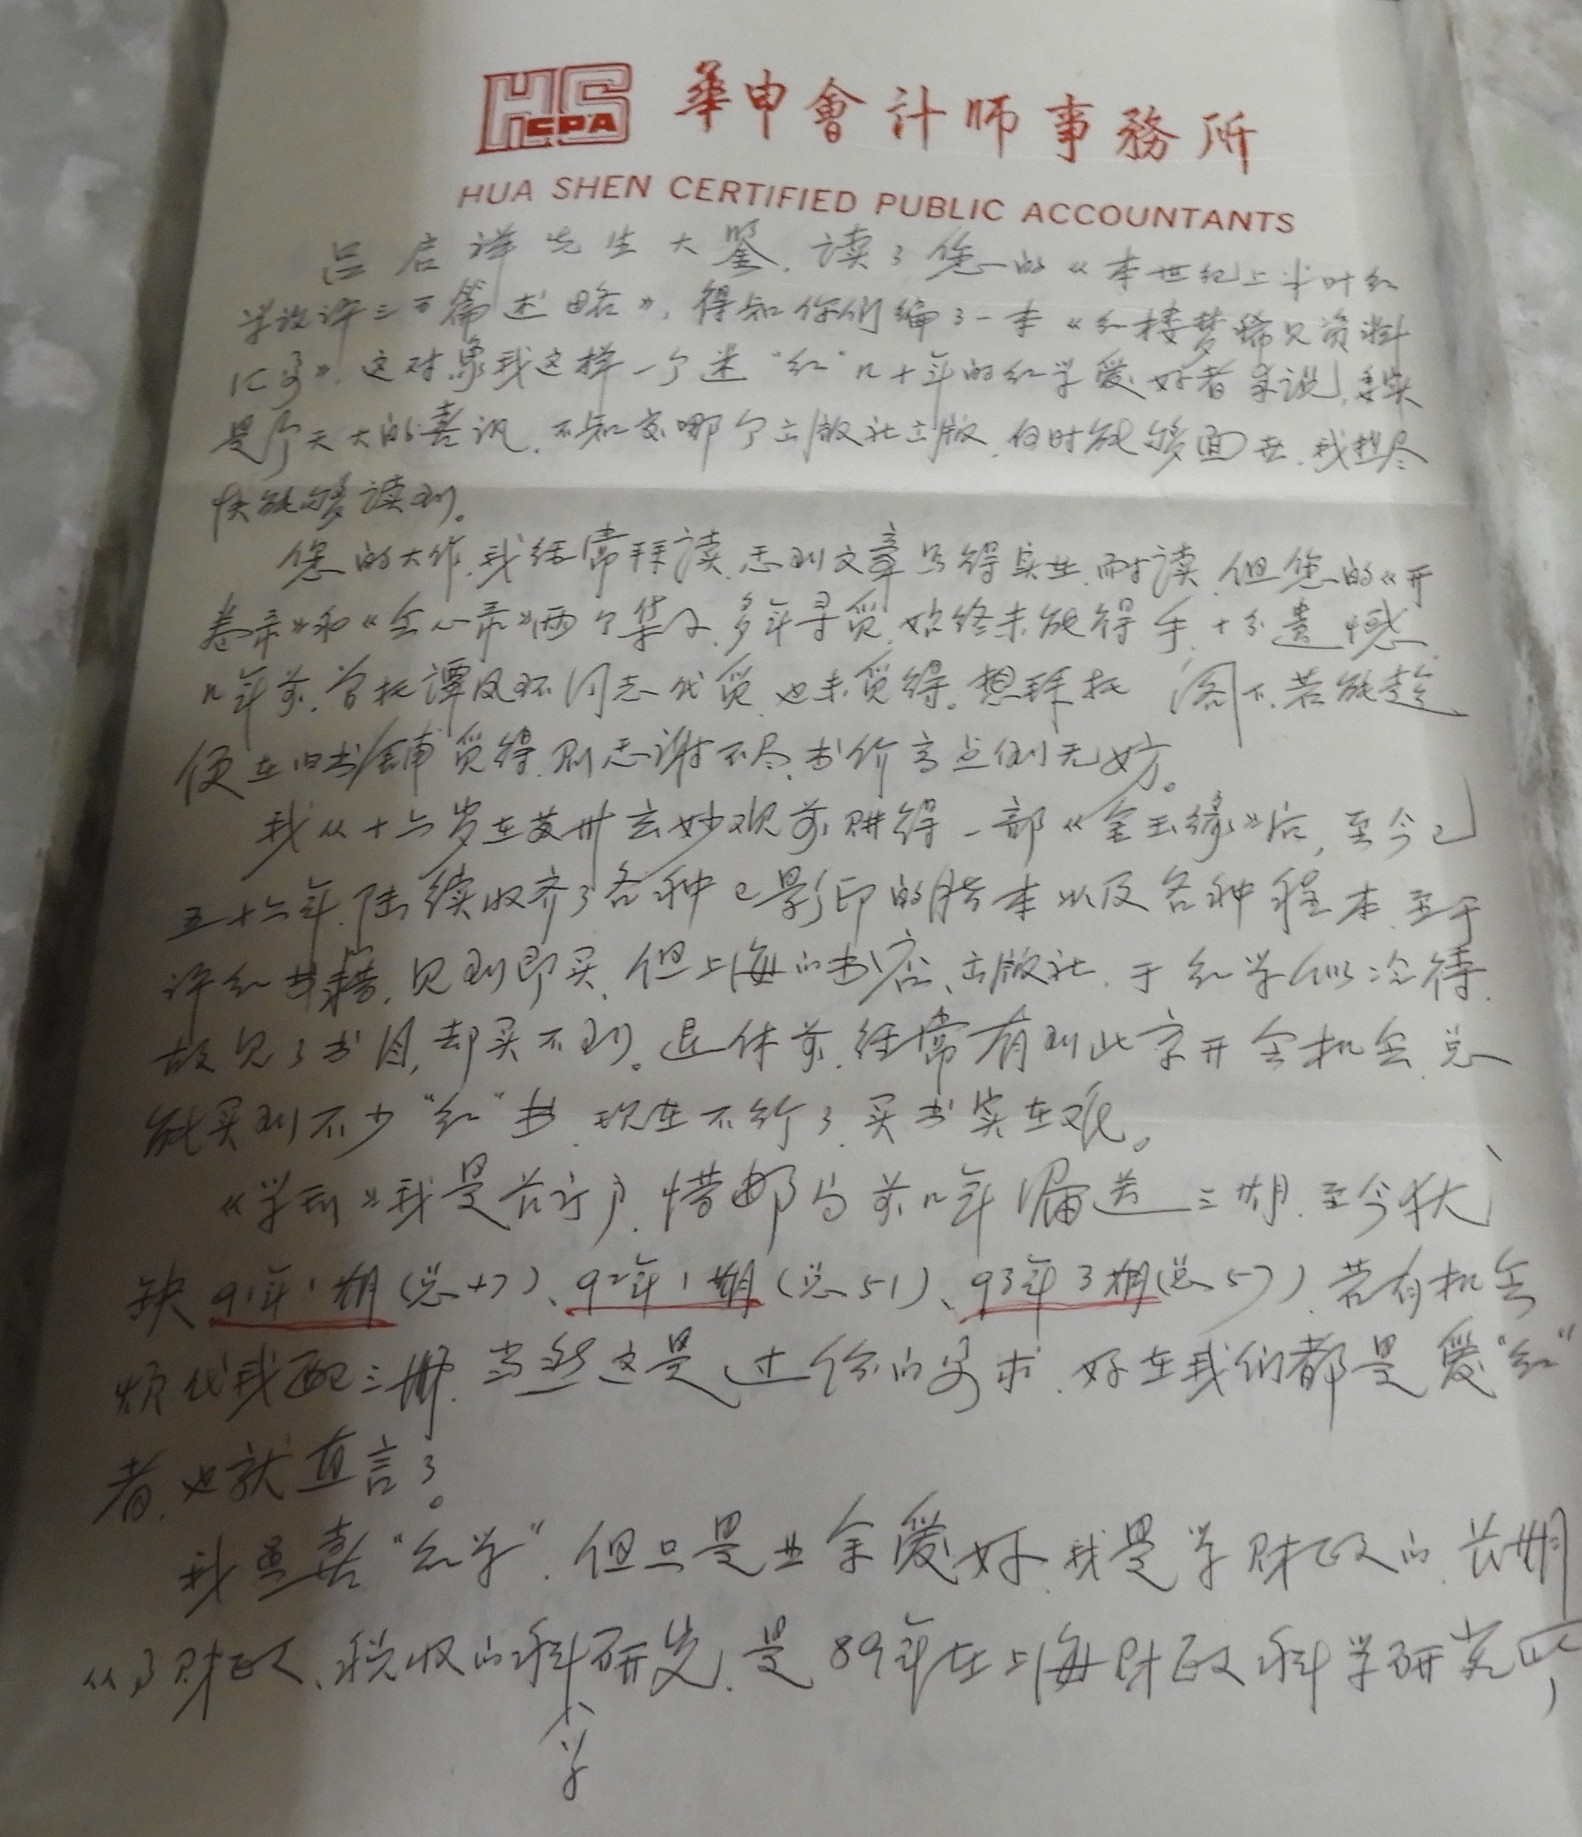 HS CPA 華申會计师事務所
HUA SHEN CERTIFIED PUBLIC ACCOUNTANTS
吕启祥先生大鉴，读了您的《本世纪上半叶红
学议评三百篇述略》，得知你们编了一本《红楼梦稀见资料
汇编》，这对象我这样一个迷“红”几十年的红学爱好者来说，委实
是个天大的喜讯，不知在哪个出版社出版，何时能够面世，我想尽
快能够读到。
您的大作，我经常拜读，感到文章写得实在，耐读，但您的《开
卷录》和《会心录》两个集子，多年寻觅，始终未能得手，十分遗憾，
几年前，曾托谭凤环同志代觅，也未觅得。想拜托 阁下，若能趁
便在旧书铺觅得，则感谢不尽，书价高点倒无妨。
我从十六岁在苏州玄妙观前购得一部《金玉缘》后，至今已
五十六年，陆续收齐了各种已影印的脂本以及各种程本，至于
评红书籍，见到即买，但上海的书店、出版社，于红学似冷待，
故见了书目，却买不到。退休前，经常有到北京开会机会，总
能买到不少“红”书，现在不行了，买书实在难。
《学刊》我是老订户，惜邮局前几年漏送三期，至今犹
缺91年1期（总47）、92年1期（总51）、93年3期（总57），若有机会
烦代我配三册，当然这是过份的要求，好在我们都是爱“红”
者，也就直言了。
我虽喜“红学”，但只是业余爱好，我是学财政的，长期
从事财政、税收的科学研究，是89年在上海财政科学研究所